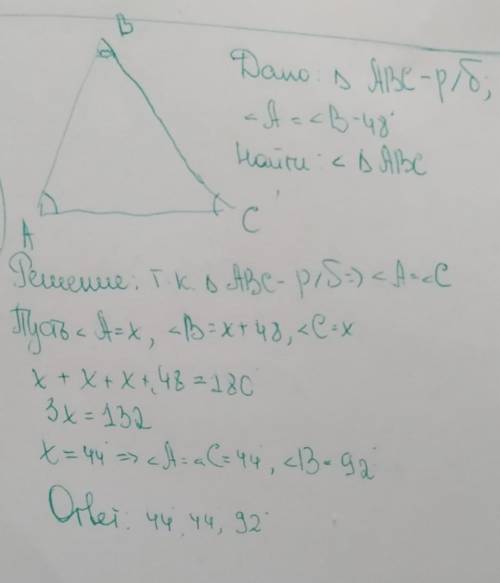 B
Дано: Δ ABC - р/б;
∠A = ∠B - 48°
Найти: ∠ Δ ABC
A
C
Решение: т.к. Δ ABC - р/б => ∠A = ∠C
Пусть ∠A = x, ∠B = x + 48, ∠C = x
x + x + x + 48 = 180
3x = 132
x = 44° => ∠A = ∠C = 44°, ∠B = 92°
Ответ: 44°, 44°, 92°